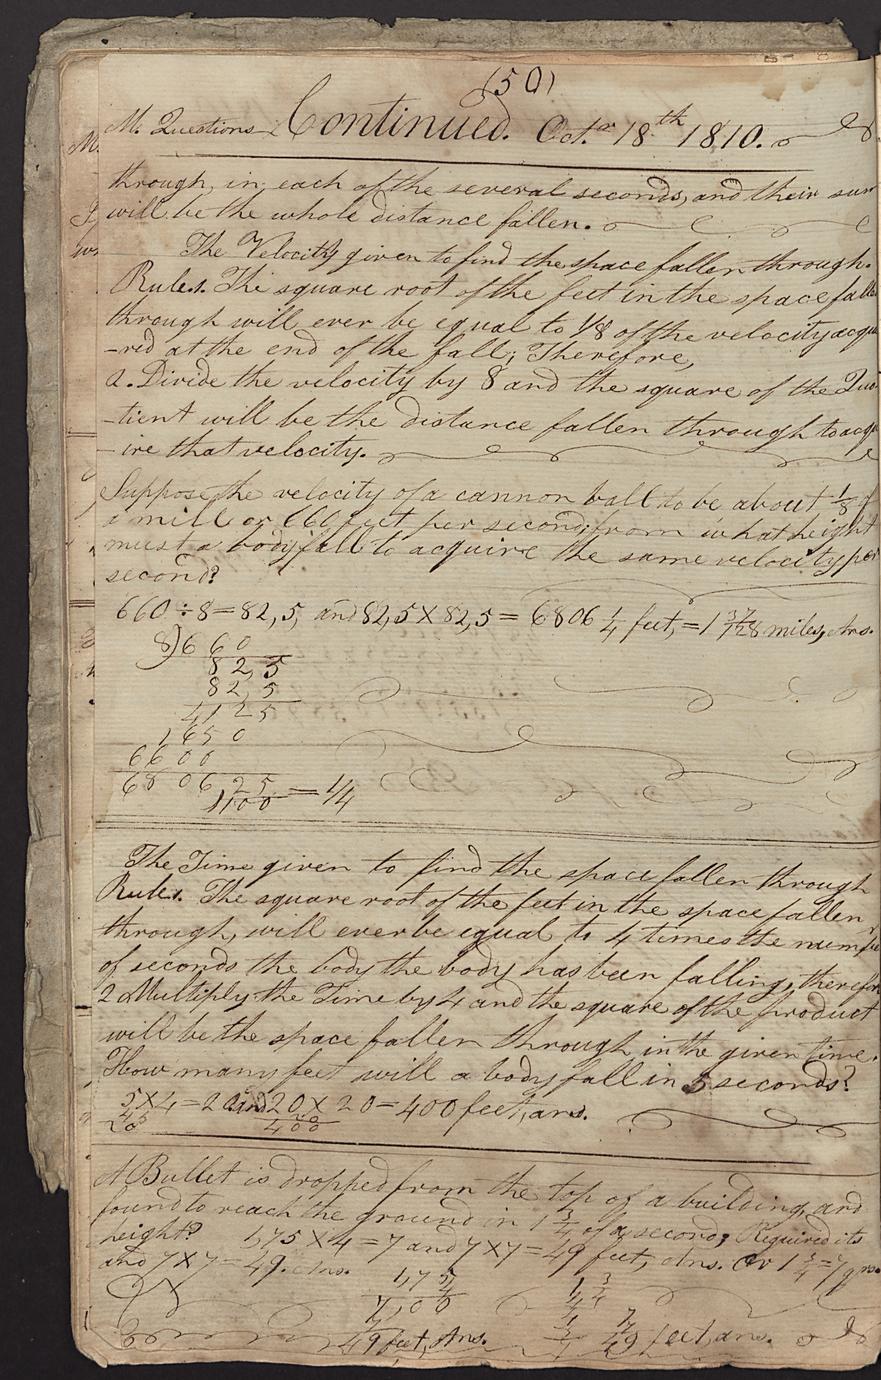 (50)
M. Questions Continued. Oct.r 18th 1810.
through, in each of the several seconds, and their sum
will be the whole distance fallen.
The Velocity given to find the space fallen through.
Rule 1. The square root of the feet in the space fall
through will ever be equal to 1/8 of the velocity acqu
-red at the end of the fall; Therefore,
2. Divide the velocity by 8 and the square of the Quo
-tient will be the distance fallen through to acqu
-ire that velocity.
Suppose the velocity of a cannon ball to be about 1/8 of
a mill or 660 feet per second; from what height
must a body fall to acquire the same velocity per
second?
660 ÷ 8 = 82,5, and 82,5 X 82,5 = 6806 1/4 feet, = 1 37/128 miles, Ans.
8)660
82,5
82,5
4125
1650
6600
6806 25
1100 = 1/4
The Time given to find the space fallen through
Rule 1. The square root of the feet in the space fallen
through, will ever be equal to 4 times the number
of seconds the body the body has been falling, therefor
2 Multiply the Time by 4 and the square of the product
will be the space fallen through in the given time.
How many feet will a body fall in 5 seconds?
5 X 4 = 20 and 20 X 20 = 400 feet, ans.
45 20
20 400
A Bullet is dropped from the top of a building, and
found to reach the ground in 1 3/4 of a second; Required its
height? 1,75 X 4 = 7 and 7 X 7 = 49 feet, Ans. Or 1 3/4 = 7/4
and 7 X 7 = 49. Ans.
1,75 1 3/4
4 4
7,00 7
7 7
49 feet, Ans. 49 feet, ans.